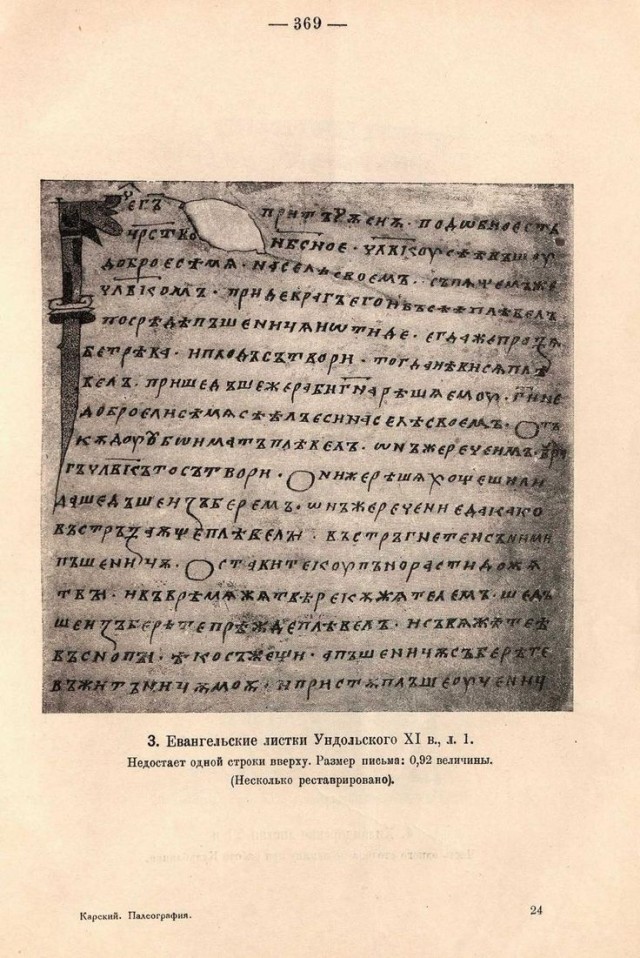 — 369 —
притъчѫ сиѭ · подобно естъ
ч҃рство н҃бсное · ч҃лвкоу сѣвъшоу
доброе сѣмѧ · на селѣ своемъ · съпѧщемъ же
ч҃лвкомъ · приде врагъ его и въсѣѣ плѣвелъ
посрѣдѣ пъшеничѧ и ѡтиде · егда же прозѧ
бе трѣва · и плодъ сътвори · тогда ѣви сѧ плѣ
велъ · пришедъше же раби г҃на рѣшѧ емоу · г҃и не
доброе ли сѣмѧ сѣѣлъ еси на селѣ своемъ · отъ
кѫдоу ѹбо иматъ плѣвелъ · ѡнъ же рече имъ · вра
гъ ч҃лвкъ то сътвори · Они же рѣшѧ хощеши ли
да шедъше изъберемъ · ѡнъ же рече ни еда како
въстръзаѭще плѣвелꙑ · въстръгнете и съ ними
пъшеничѫ · Оставите коупъно расти до жѧ
твꙑ · и въ врѣмѧ жѧтвѣ рекѫ жѧтелемъ · шедъ
ше изъберѣте прѣжде плѣвелъ · и съвѧжѣте ѣ
въ снопꙑ · ѣко съжещи · а пъшеничѫ съберѣте
въ житъничѫ моѭ · и пристѫпльше оученичи
3. Евангельские листки Ундольского XI в., л. 1.
Недостает одной строки вверху. Размер письма: 0,92 величины.
(Несколько реставрировано).
Карский. Палеография.
24